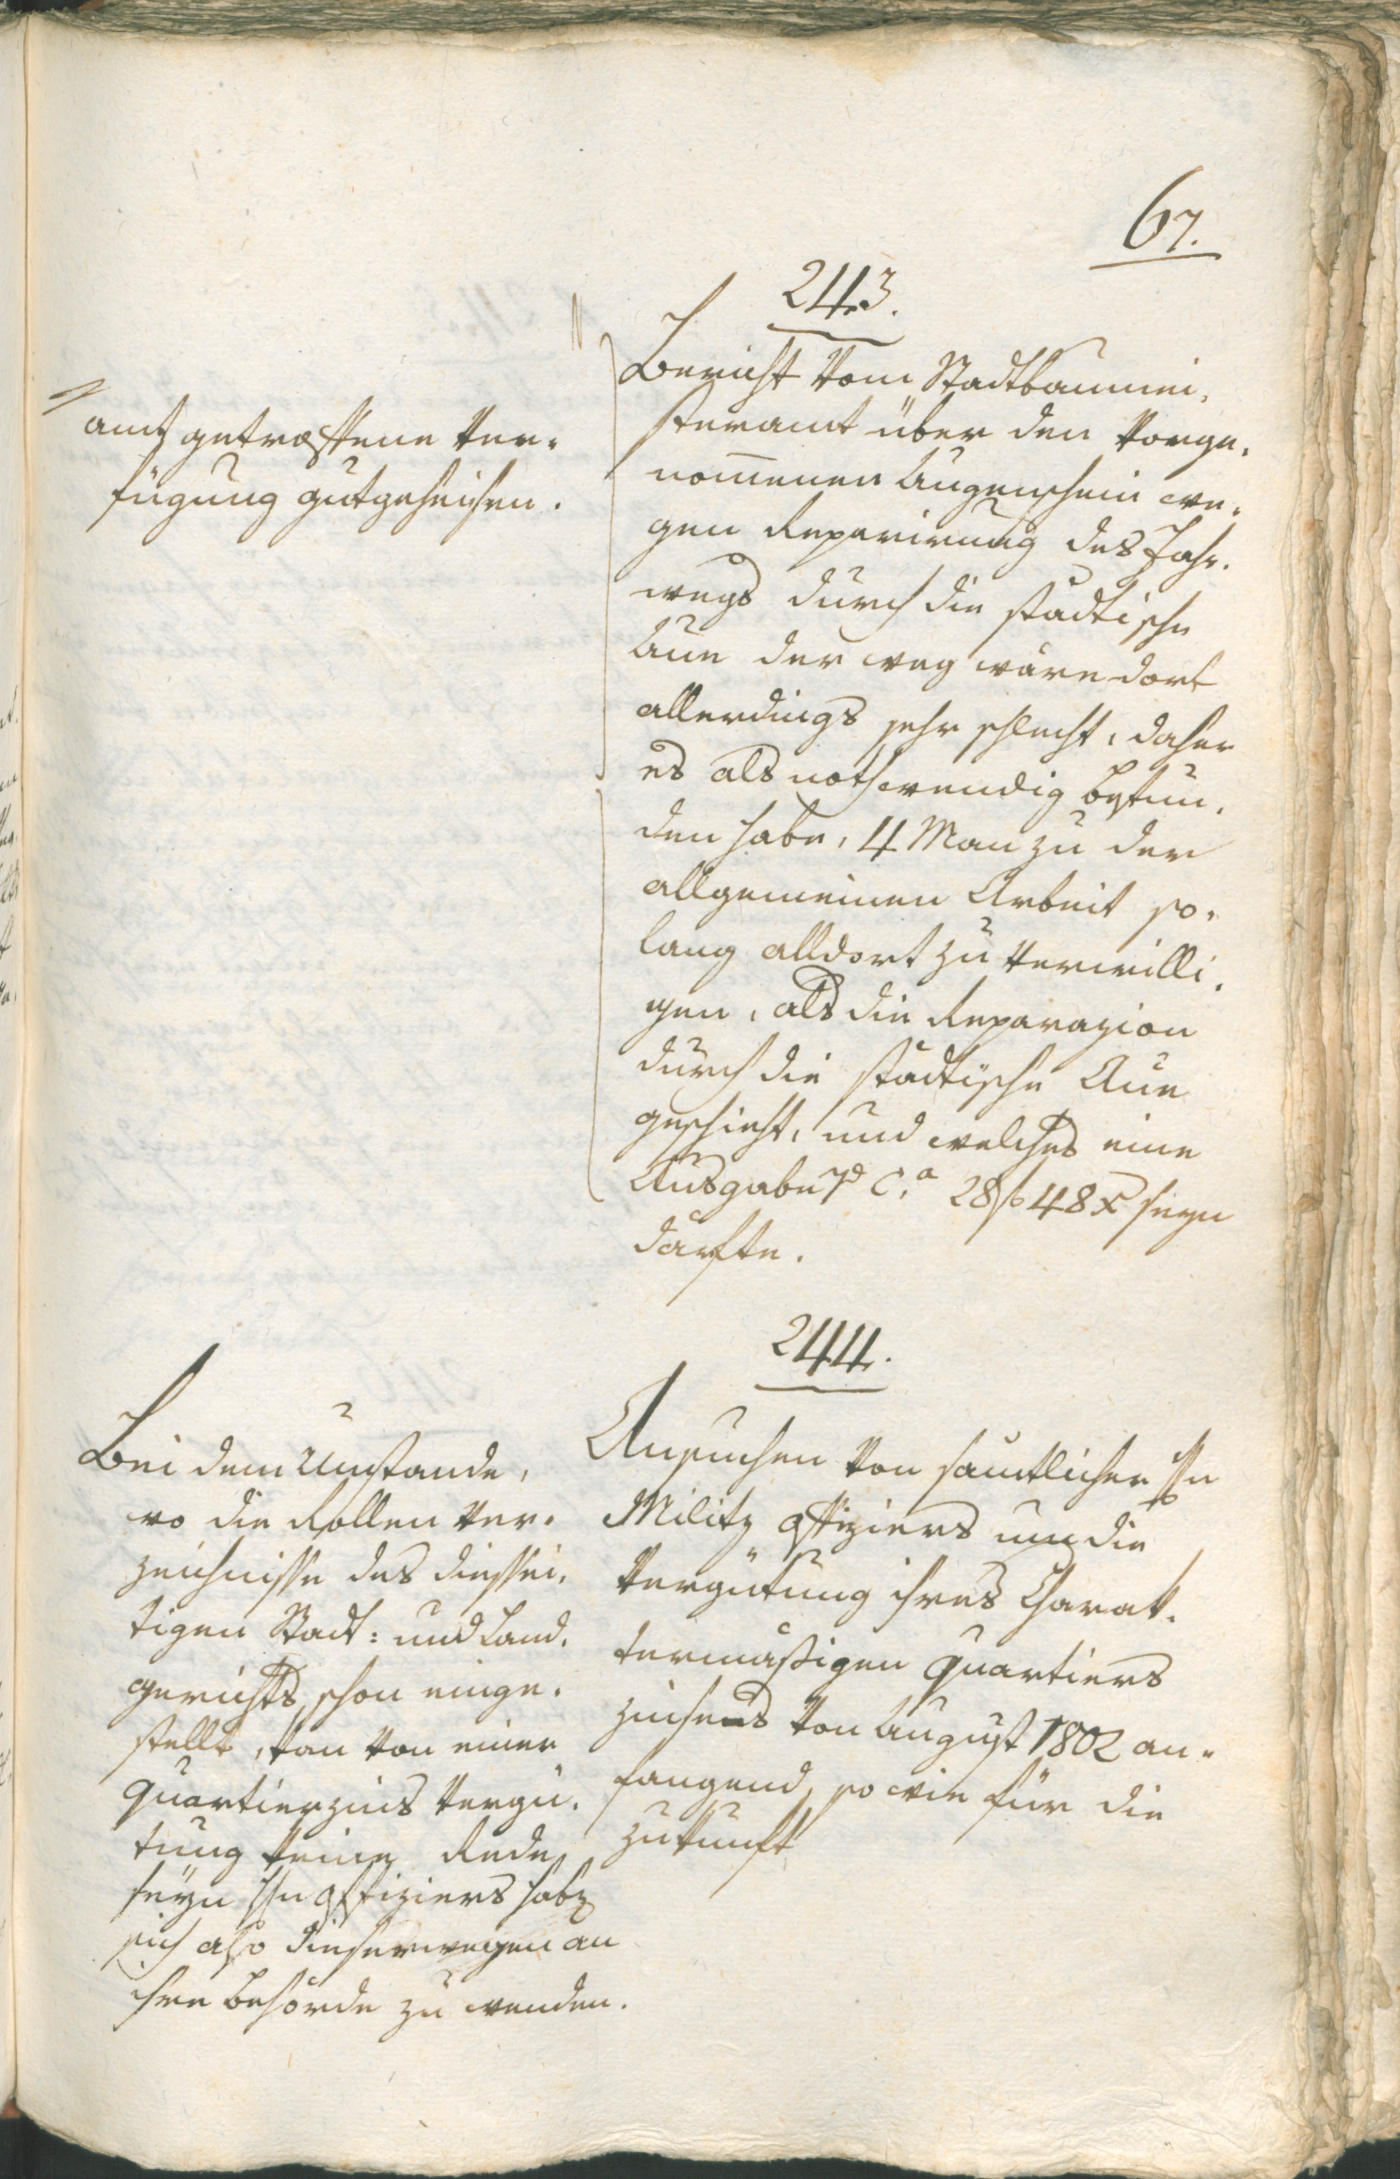 67.
243.
Bericht vom Stadtbaumei,
steramt über den vorge,
nom̅enen Augenschein we,
gen Reparirung des Fahr,
wegs durch die städtische
Aue der weg wäre dort
allerdings sehr schlecht, daher
es als nothwendig befun,
den habe, 4 Man zu der
allgemeinen Arbeit so,
lang alldort zu verwilli,
gen, als die Reparazion
durch die städtische Aue
geschieht, und welches eine
Ausgabe pd C.a 28 f 48 x seyn
därfte.
amt getroffene Ver,
fügung gutgeheisen.
244.
Ansuchen von sämtlicher Hn
Militz offiziers um die
Vergütung ihres Charak,
termäßigen Quartiers
zinses von August 1802 an,
fangend, so wie für die
zukunft
Bei dem Umstande,
wo die Rollen Ver,
zeichnisse des diessei,
tigen Stadt: und Land,
gerichts schon einge,
stellt, kan von einer
Quartierzins Vergü,
tung keine Rede
seyn Hn Offiziers habe
sich also dieserwegen an
ihre Behörde zu wenden.